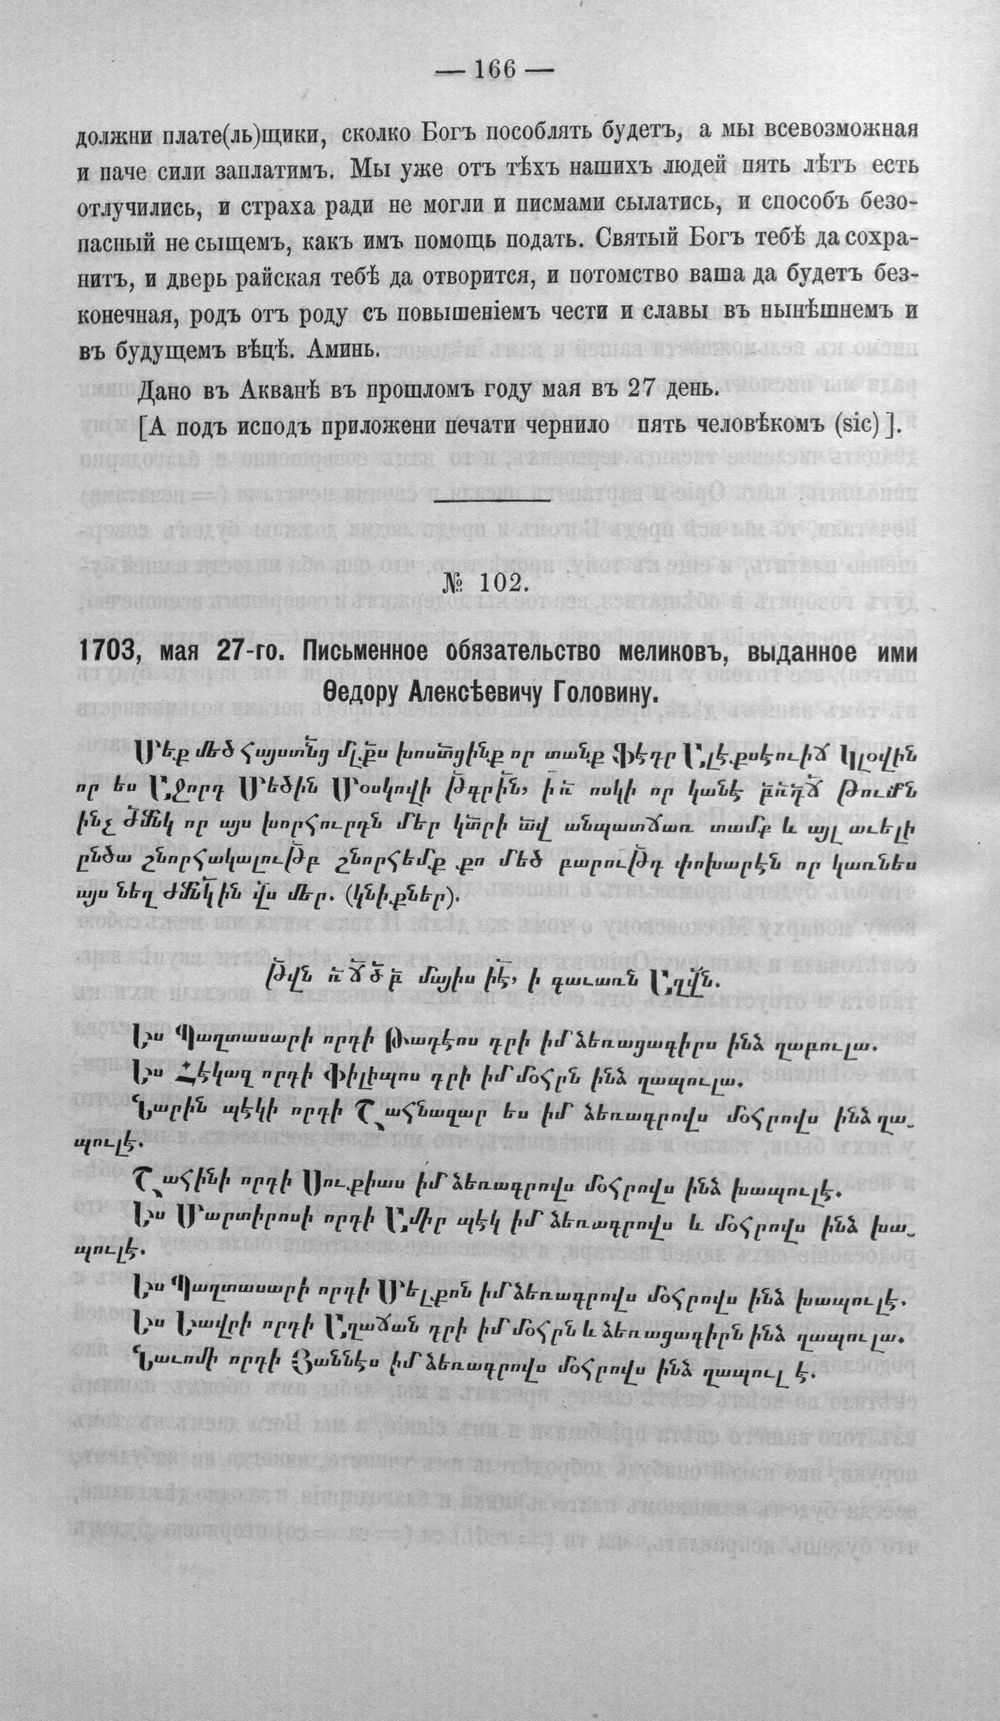 — 166 —
должни плате(ль)щики, сколко Богъ пособлять будетъ, а мы всевозможная
и паче сили заплатимъ. Мы уже отъ тѣхъ нашихъ людей пять лѣтъ есть
отлучились, и страха ради не могли и писмами сылатись, и способъ безо-
пасный не сыщемъ, какъ имъ помощь подать. Святый Богъ тебѣ да сохра-
нитъ, и дверь райская тебѣ да отворится, и потомство ваша да будетъ без-
конечная, родъ отъ роду съ повышеніемъ чести и славы въ нынѣшнемъ и
въ будущемъ вѣцѣ. Аминь.
Дано въ Акванѣ въ прошломъ году мая въ 27 день.
[А подъ исподъ приложени печати чернило пять человѣкомъ (sic)].
№ 102.
1703, мая 27-го. Письменное обязательство меликовъ, выданное ими
Ѳедору Алексѣевичу Головину.
Մեք մեծ Հայստ՞նց մլ՞քս խոստ՞ցինք որ տանք Ֆէդր Ալէքսէուիճ Կլօվին
որ ես Աջորդ Մեծին Մօսկովի թգրին, ի՞ռ ոսկի որ կանէ թուման
ինչ ժմ՞նկ որ այս խորհուրդն մեր կտ՞րի ա՞վ անպատճառ տամք և այլ աւելի
ընծա շնորհակալուԹբ շնորհեմք քո մեծ բարուԹդ փոխարէն որ կառնես
այս նեղ ժմ՞նկին վս մեր. (կնիքներ).
Թվն ռ՞ճ՞ծ՞բ մայիս ի՞է, ի գաւառն Աղվ՞ն.
Ես Պաղտասարի որդի Թադէոս դրի իմ ձեռացագիրս ինձ ղաբուլա.
Ես Հէկազ որդի Փիլիպոս դրի իմ մօհրն ինձ ղապուլա.
Նարին պէկի որդի Շահնազար ես իմ ձեռագրովս մօհրովս ինձ ղա-
պուլէ.
Շահինի որդի Սուքիաս իմ ձեռագրովս մօհրովս ինձ խապուլէ.
Ես Մարտիրոսի որդի Ամիր պէկ իմ ձեռագրովս և մօհրովս ինձ խա-
պուլէ.
Ես Պաղտասարի որդի Մելքոն իմ ձեռագրովս մօհրովս ինձ խապուլէ.
Ես Եավրի որդի Աղաճան դրի իմ մօհրն և ձեռացագիրն ինձ ղապուլա.
Նաւոմի որդի Յաննէս իմ ձեռագրովս մօհրովս ինձ ղապուլ է.